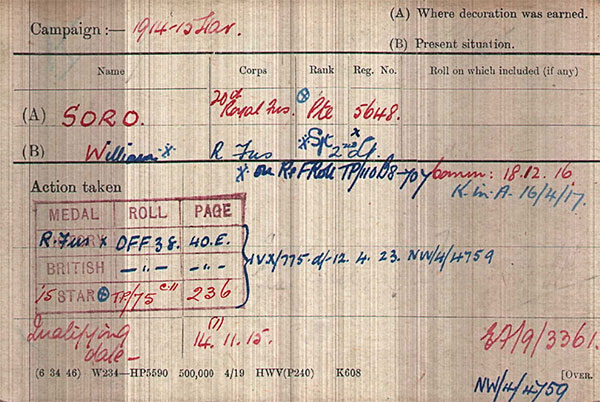 Campaign :— 1914-15 Star.
(A) Where decoration was earned.
(B) Present situation.
Name Corps Rank Reg. No. Roll on which included (if any)
(A) SORO. 20th Royal Fus. Pte 5648.
(B) William R Fus 2nd Lt.
Comm: 18.12.16
K. in A. 16/4/17.
Action taken
MEDAL ROLL PAGE
VICTORY R. Fus x OFF 38. 40.E.
BRITISH —"— —"—
15 STAR TP/75 236
IVX/775 d/-12.4.23. NW/4/4759
Qualifying date — 14.11.15.
(1)
(6 34 46) W234—HP5590 500,000 4/19 HWV(P240) K608
[OVER.
NW/4/4759